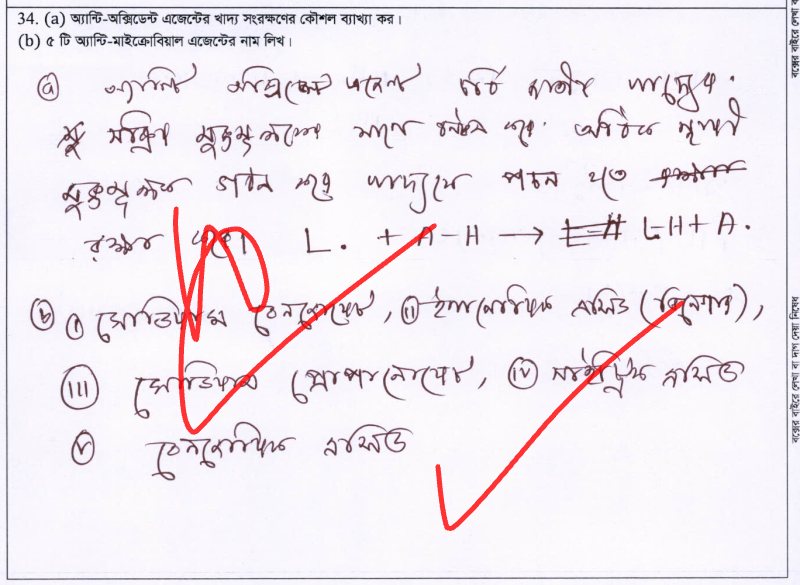 34. (a) অ্যান্টি-অক্সিডেন্ট এজেন্টের খাদ্য সংরক্ষণের কৌশল ব্যাখ্যা কর।
(b) ৫ টি অ্যান্টি-মাইক্রোবিয়াল এজেন্টের নাম লিখ।
ⓐ অ্যান্টি অক্সিডেন্ট এজেন্ট চর্বি জাতীয় খাদ্যের
সক্রিয় মুক্তমূলকের সাথে বন্ধন করে অধিক স্থায়ী
মুক্তমূলক গঠন করে খাদ্যকে পচন হতে
রক্ষা করে। L. + A-H → LH + A.
ⓑ ⓘ সোডিয়াম বেনজোয়েট, ⓘⓘ ইথানোয়িক এসিড (ভিনেগার),
ⓘⓘⓘ সোডিয়াম প্রোপানোয়েট, ⓘⓥ সাইট্রিক এসিড
ⓥ বেনজোয়িক এসিড
বক্সের বাইরে লেখা বা দাগ দেয়া নিষেধ